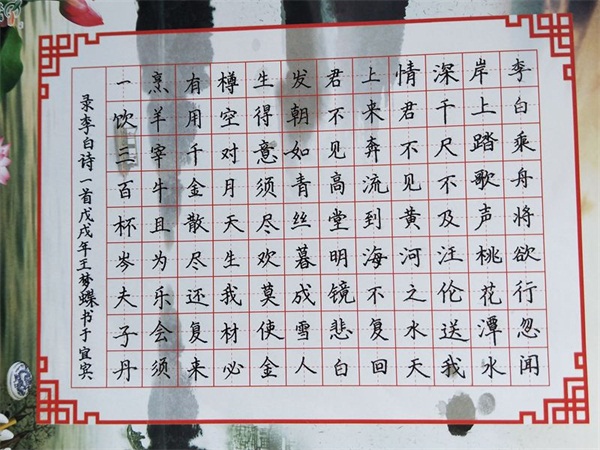 李白乘舟将欲行忽闻
岸上踏歌声桃花潭水
深千尺不及汪伦送我
情君不见黄河之水天
上来奔流到海不复回
君不见高堂明镜悲白
发朝如青丝暮成雪人
生得意须尽欢莫使金
樽空对月天生我材必
有用千金散尽还复来
烹羊宰牛且为乐会须
一饮三百杯岑夫子丹
录李白诗一首戊戌年王梦蝶书于宜宾